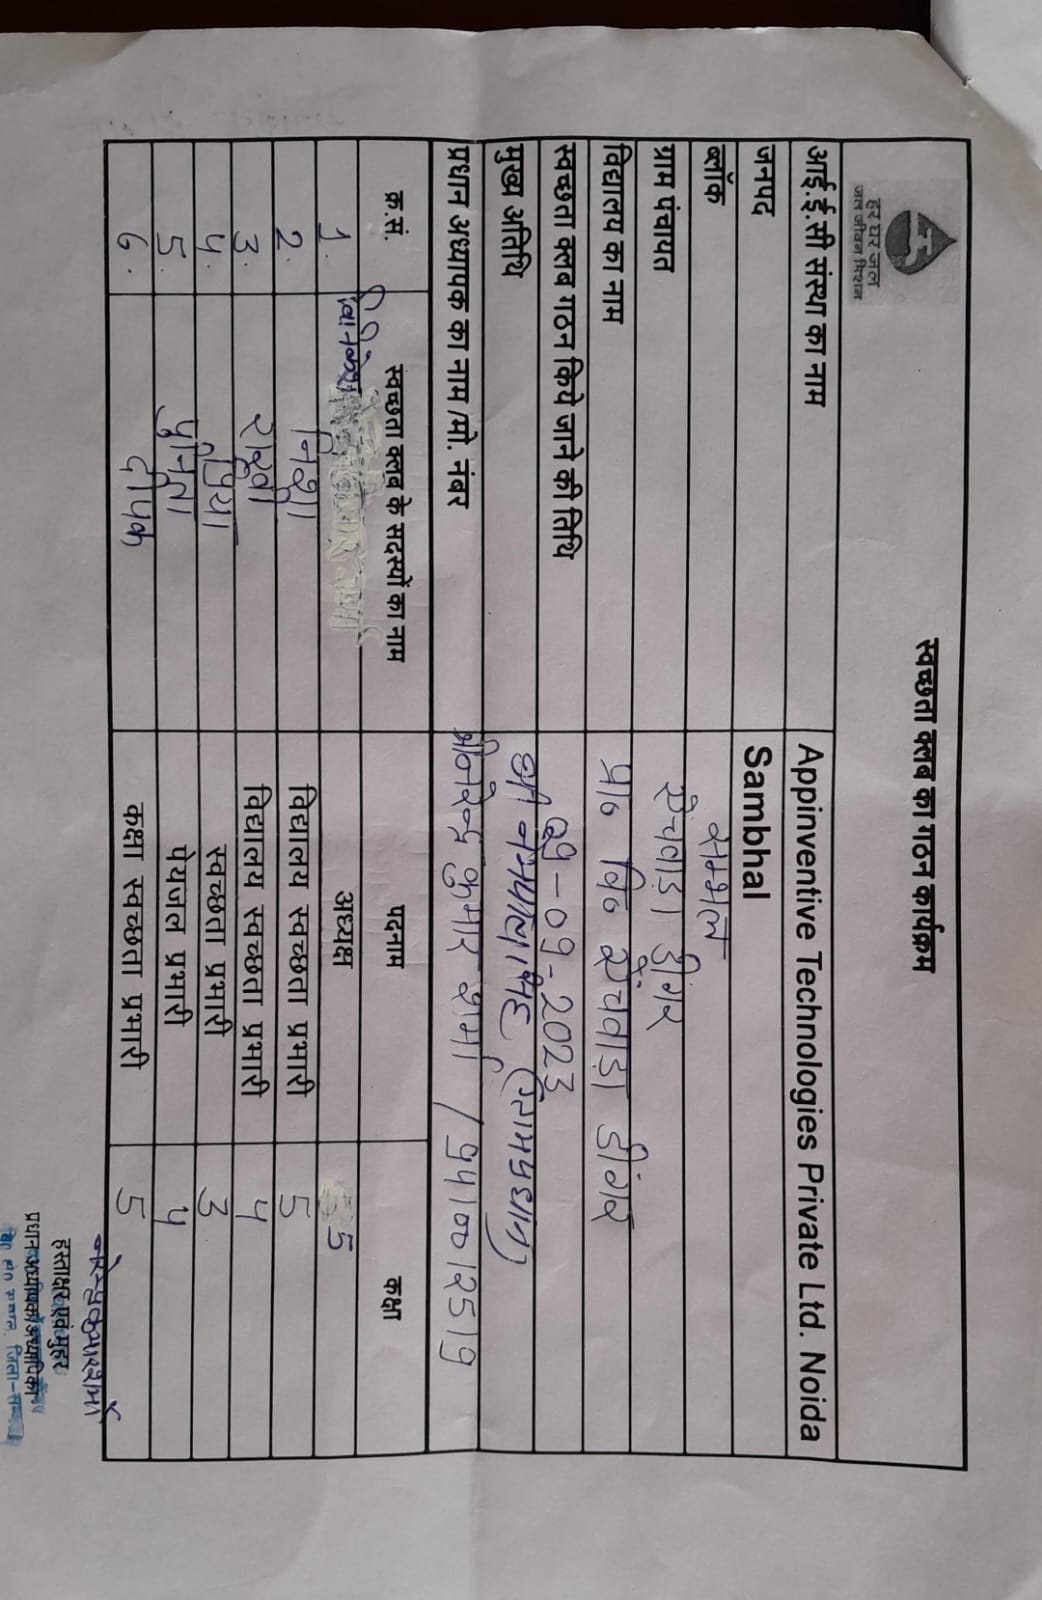 स्वच्छता क्लब का गठन कार्यक्रम
हर घर जल
जल जीवन मिशन
आई.ई.सी संस्था का नाम Appinventive Technologies Private Ltd. Noida
जनपद Sambhal
ब्लॉक सम्भल
ग्राम पंचायत डींगर
विद्यालय का नाम प्रा० वि० डींगर
स्वच्छता क्लब गठन किये जाने की तिथि 09-2023
मुख्य अतिथि श्री
प्रधान अध्यापक का नाम /मो. नंबर श्री नरेन्द्र कुमार शर्मा /
क्र.सं. स्वच्छता क्लब के सदस्यों का नाम पदनाम कक्षा
1. अध्यक्ष 5
2. विद्यालय स्वच्छता प्रभारी 5
3. विद्यालय स्वच्छता प्रभारी 4
4. प्रिया स्वच्छता प्रभारी 3
5. पेयजल प्रभारी 4
6. दीपक कक्षा स्वच्छता प्रभारी 5
नरेन्द्र कुमार शर्मा
हस्ताक्षर एवं मुहर
प्रधान अध्यापक